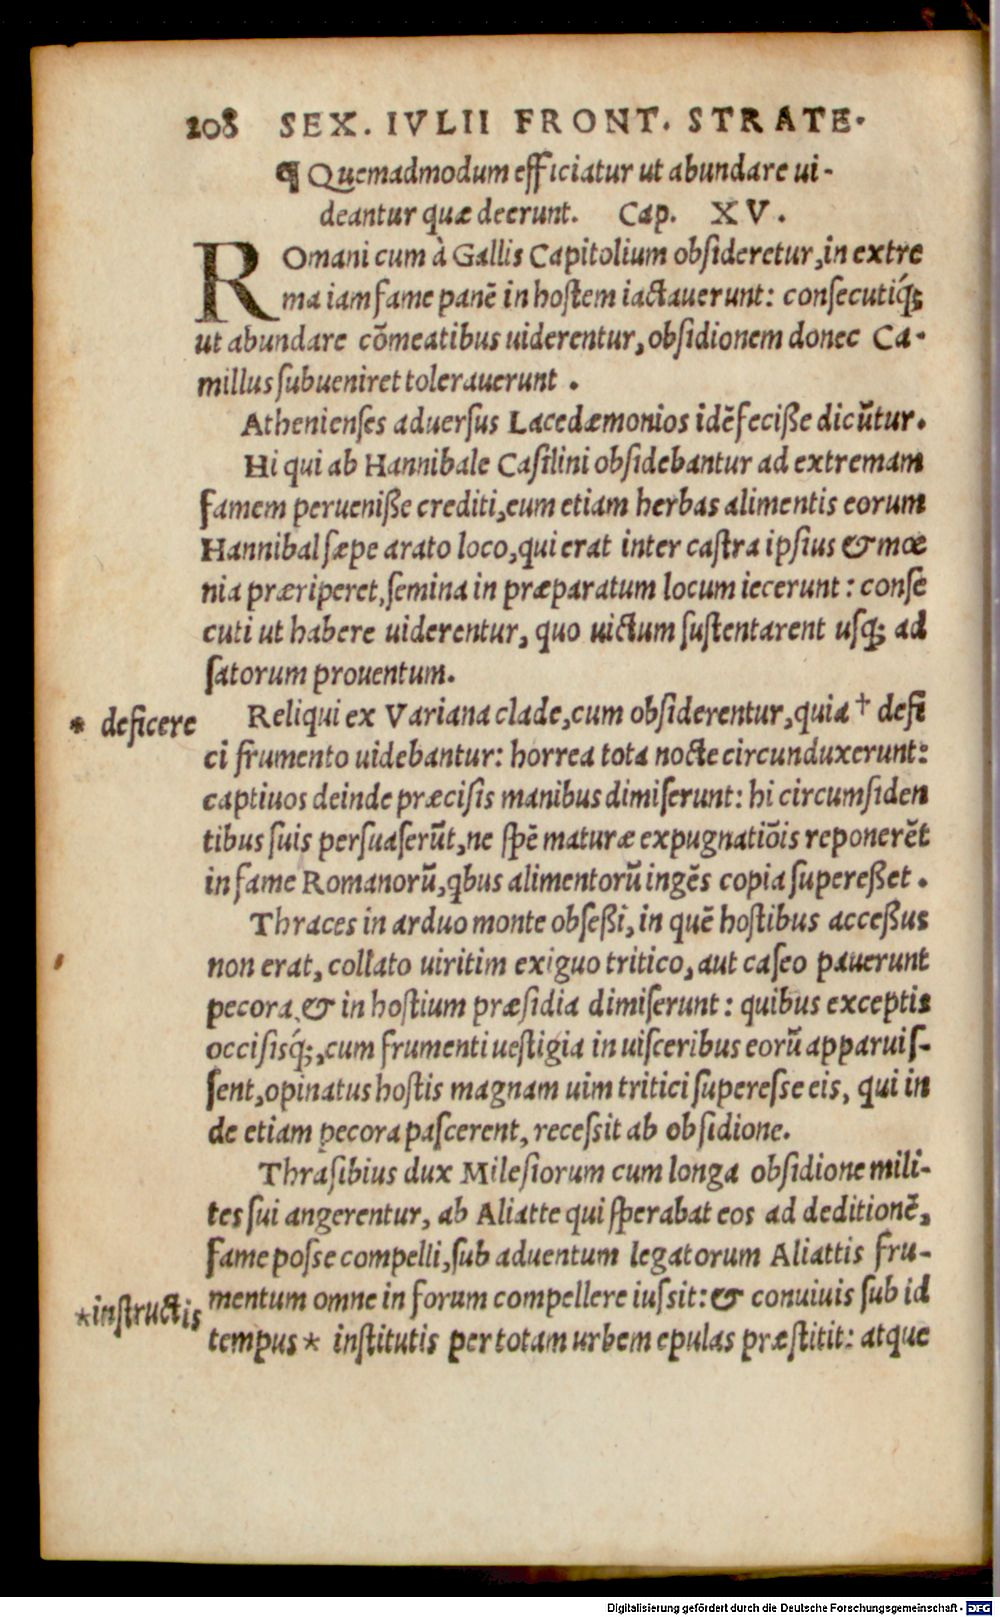 208 SEX. IVLII FRONT. STRATE.
¶ Quemadmodum efficiatur ut abundare ui-
deantur quæ deerunt. Cap. XV.
ROmani cum à Gallis Capitolium obſideretur, in extre
ma iam fame panē in hoſtem iactauerunt: conſecutiq́;
ut abundare cōmeatibus uiderentur, obſidionem donec Ca-
millus ſubueniret tolerauerunt.
Athenienſes aduerſus Lacedæmonios idē feciße dicūtur.
Hi qui ab Hannibale Caſilini obſidebantur ad extremam
famem perueniße crediti, cum etiam herbas alimentis eorum
Hannibal ſæpe arato loco, qui erat inter caſtra ipſius & mœ
nia præriperet, ſemina in præparatum locum iecerunt: conſe
cuti ut habere uiderentur, quo uictum ſuſtentarent uſq; ad
ſatorum prouentum.
* deficere
Reliqui ex Variana clade, cum obſiderentur, quia † defi
ci frumento uidebantur: horrea tota nocte circunduxerunt:
captiuos deinde præciſis manibus dimiſerunt: hi circumſiden
tibus ſuis perſuaſerūt, ne ſpē maturæ expugnatiōis reponerēt
in fame Romanorū, qbus alimentorū ingēs copia ſupereßet.
Thraces in arduo monte obſeßi, in quē hoſtibus acceßus
non erat, collato uiritim exiguo tritico, aut caſeo pauerunt
pecora, & in hoſtium præſidia dimiſerunt: quibus exceptis
occiſisq́;, cum frumenti ueſtigia in uiſceribus eorū apparuiſ-
ſent, opinatus hoſtis magnam uim tritici ſupereſſe eis, qui in
de etiam pecora paſcerent, receſſit ab obſidione.
Thraſibius dux Mileſiorum cum longa obſidione mili-
tes ſui angerentur, ab Aliatte qui ſperabat eos ad deditionē,
fame poſſe compelli, ſub aduentum legatorum Aliattis fru-
mentum omne in forum compellere iuſſit: & conuiuis ſub id
*inſtructis
tempus * inſtitutis per totam urbem epulas præſtitit: atque
Digitalisierung gefördert durch die Deutsche Forschungsgemeinschaft - DFG